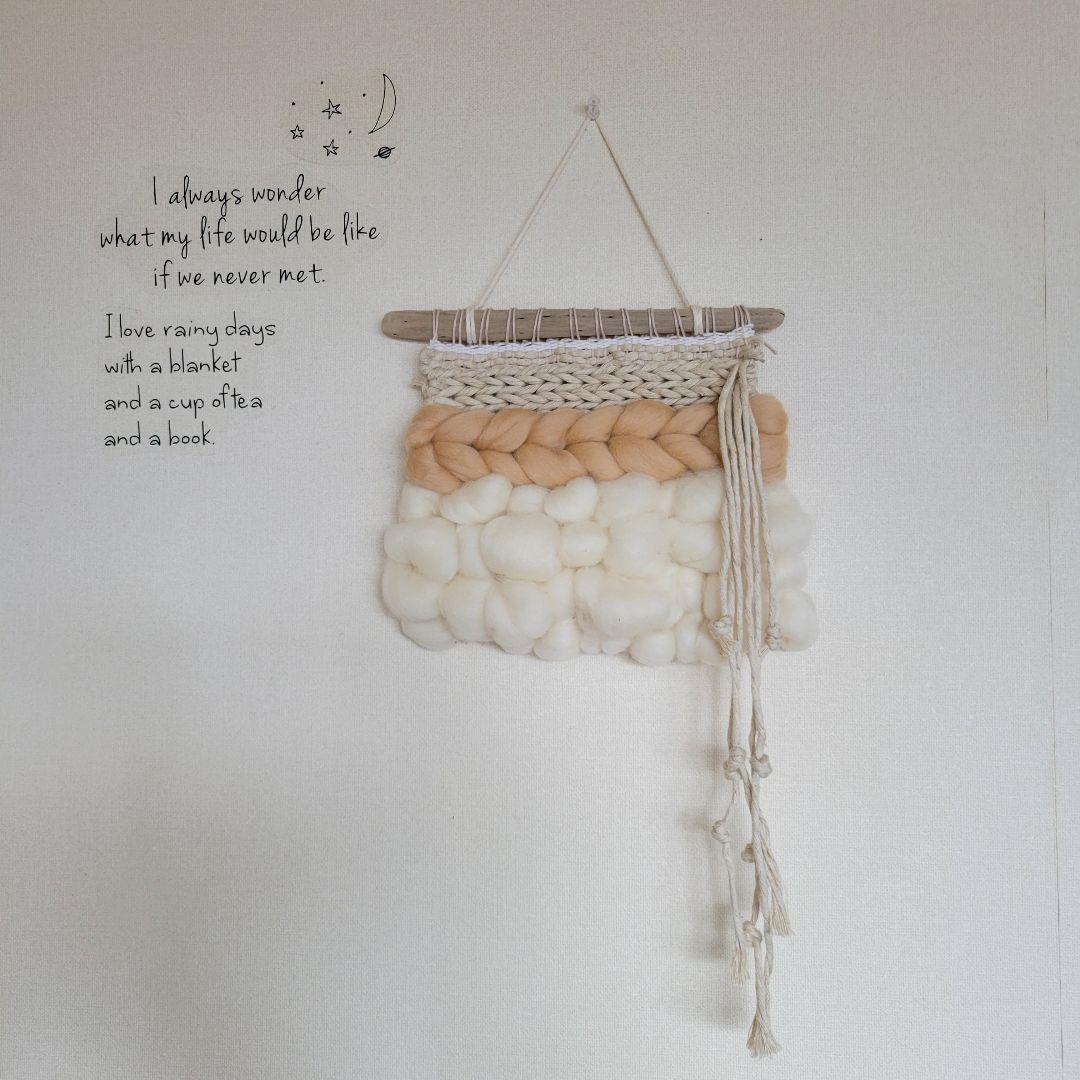 I always wonder
what my life would be like
if we never met.
I love rainy days
with a blanket
and a cup of tea
and a book.